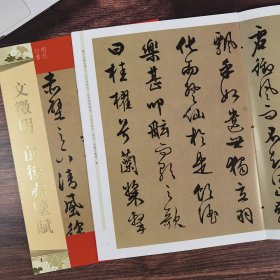 虛御風而不知其
飄乎如遺世獨立羽
化而登仙於是飲酒
樂甚叩舷而歌之歌
曰桂櫂兮蘭槳擊
赤壁之下清風徐
文徵明 前後赤壁賦